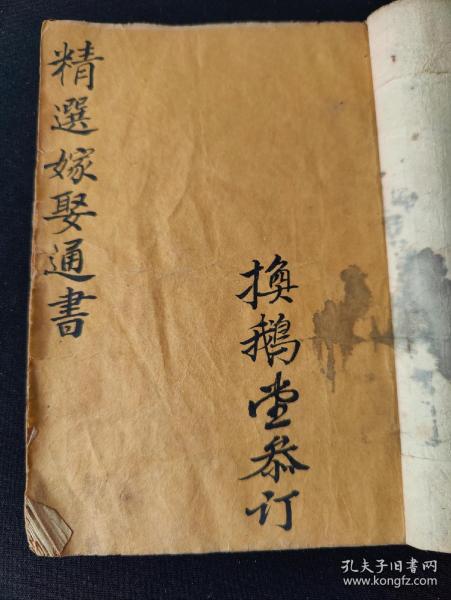 精選嫁娶通書
換鵝堂叅订
孔夫子旧书网
www.kongfz.com